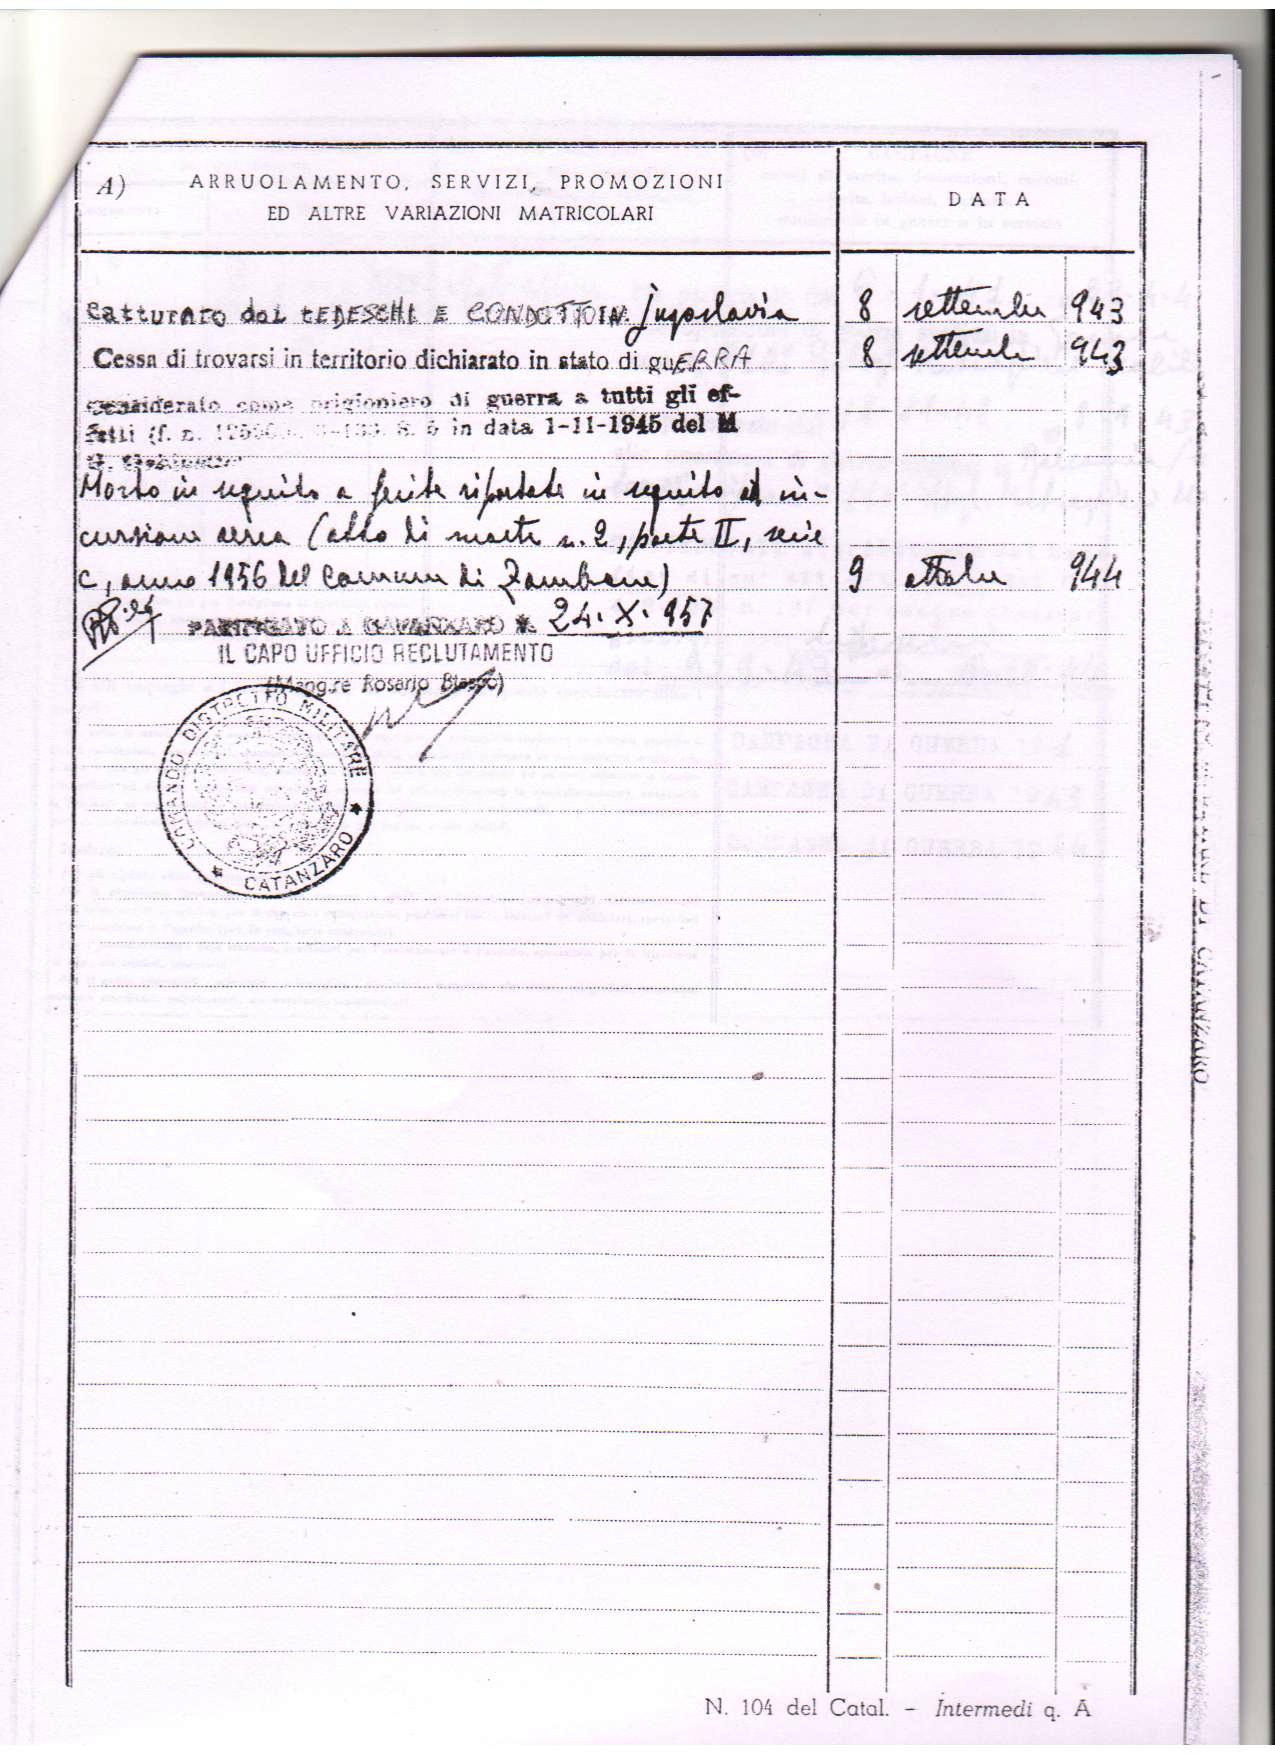 A) ARRUOLAMENTO, SERVIZI, PROMOZIONI
ED ALTRE VARIAZIONI MATRICOLARI
DATA
Catturato dai TEDESCHI E CONDOTTO IN Jugoslavia 8 settembre 943
Cessa di trovarsi in territorio dichiarato in stato di guERRA 8 settembre 943
Considerato come prigioniero di guerra a tutti gli ef-
fetti (f. n. in data 1-11-1945 del M
Morto in seguito a ferite riportate in seguito ad in-
cursione aerea (atto di morte n. 2, parte II, serie
C, anno 1956 del Comune di) 9 ottobre 944
24. X. 957
IL CAPO UFFICIO RECLUTAMENTO
Rosario
COMANDO DISTRETTO MILITARE
★ CATANZARO ★
DI CATANZARO
N. 104 del Catal. - Intermedi q. A